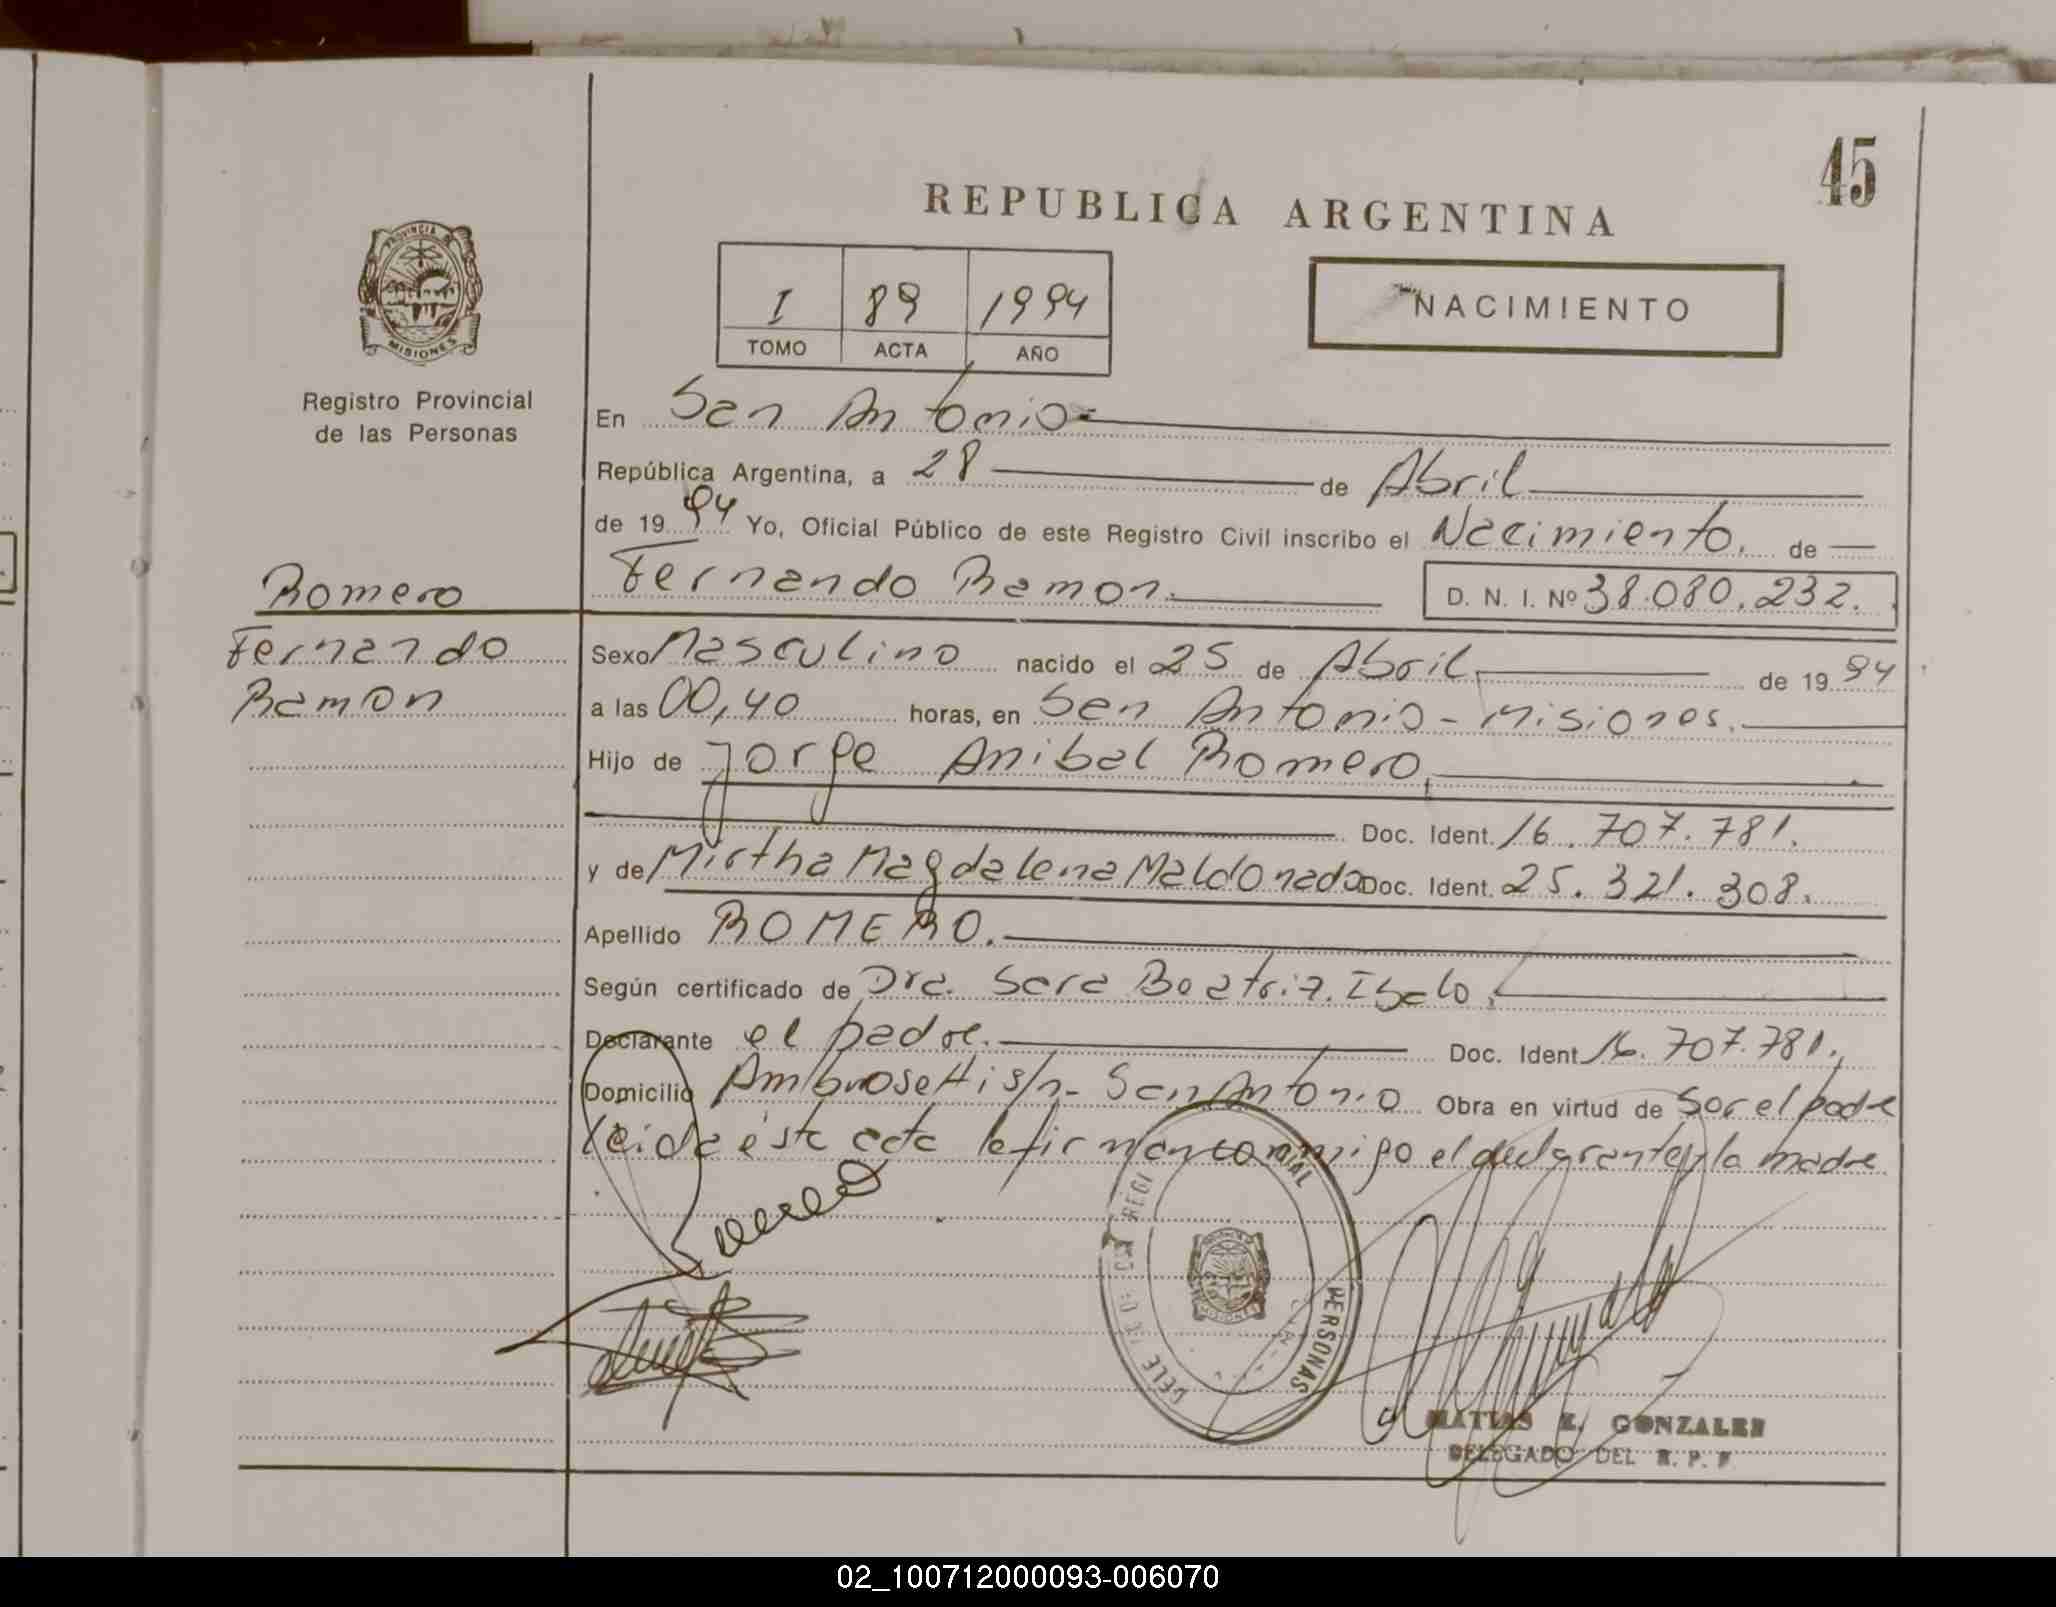 45
REPUBLICA ARGENTINA
PROVINCIA DE
MISIONES
Registro Provincial
de las Personas
I 89 1994
TOMO ACTA AÑO
NACIMIENTO
En San Antonio
República Argentina, a 28 de Abril
de 19 94 Yo, Oficial Público de este Registro Civil inscribo el Nacimiento. de
Fernando Ramon. D. N. I. Nº 38.080.232.
Romero
Fernando
Ramon
Sexo Masculino nacido el 25 de Abril de 19 94
a las 00,40 horas, en San Antonio - Misiones.
Hijo de Jorge Anibal Romero
Doc. Ident. 16.707.781.
y de Mirtha Magdalena Maldonado Doc. Ident. 25.321.308.
Apellido ROMERO.
Según certificado de Dra. Sara Beatriz
Declarante el padre. Doc. Ident 16.707.781.
Domicilio Ambrosetti s/n - San Antonio Obra en virtud de Sor el padre
leida ésta acta la firman conmigo el declarante y la madre
PERSONAS
MATIAS E. GONZALEZ
DELEGADO DEL R. P. P.
02_100712000093-006070